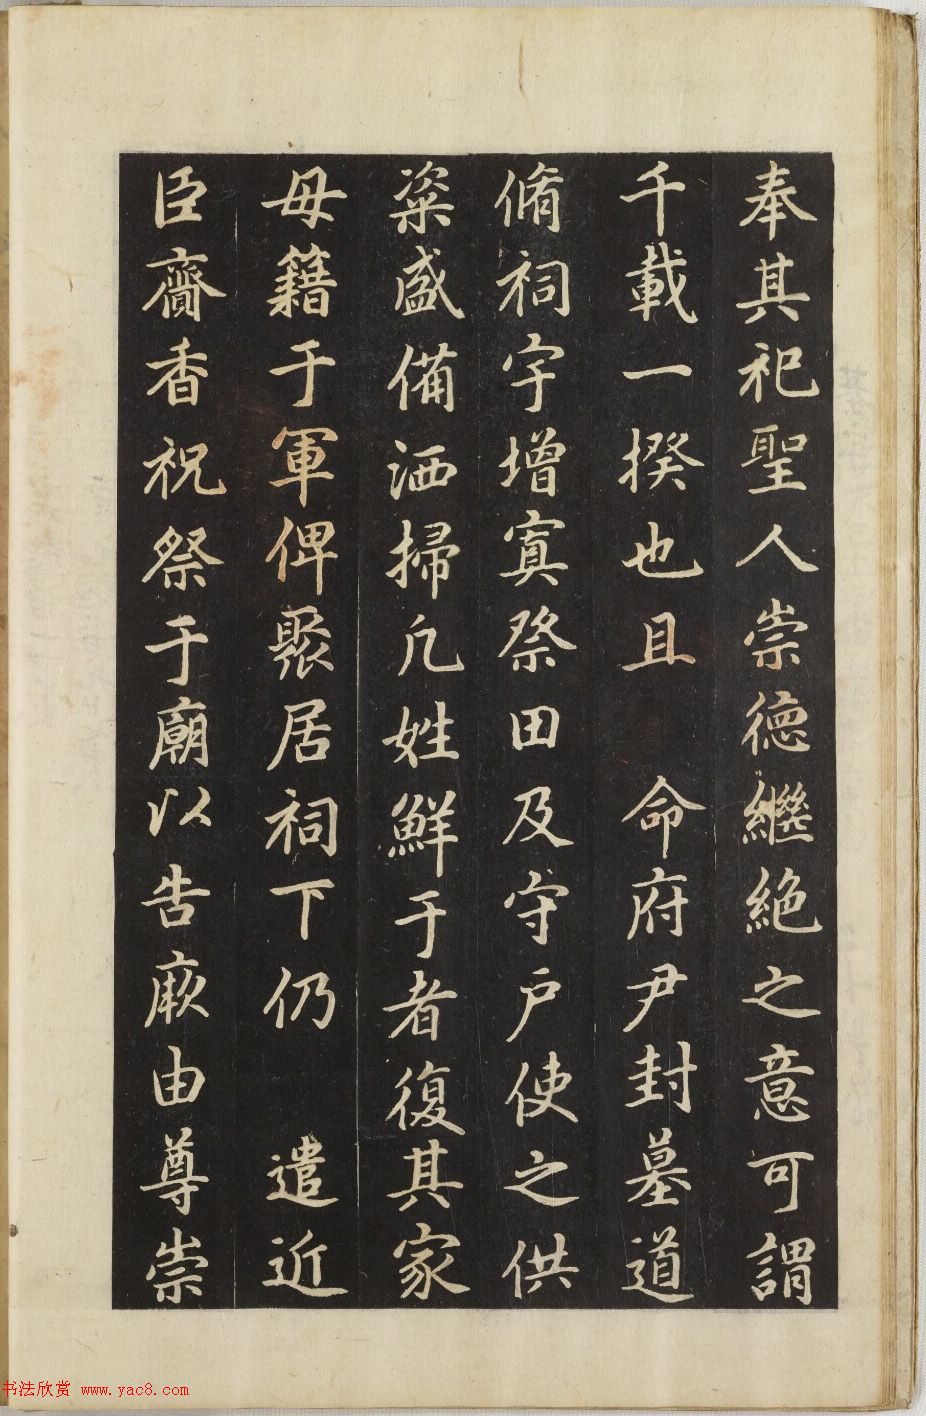 奉其祀聖人崇德繼絕之意可謂
千載一揆也且 命府尹封墓道
脩祠宇增寘祭田及守戶使之供
粢盛備洒掃凡姓鮮于者復其家
毋籍于軍俾聚居祠下仍 遣近
臣齎香祝祭于廟以告厥由尊崇
书法欣赏 www.yac8.com